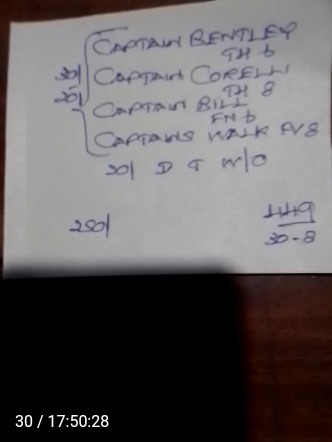 CAPTAIN BENTLEY
TH 6
CAPTAIN CORELLI
TH 8
CAPTAIN BILL
FN 6
CAPTAINS WALK FV8
20/ D T W/O
250/
449
30-8
30 / 17:50:28